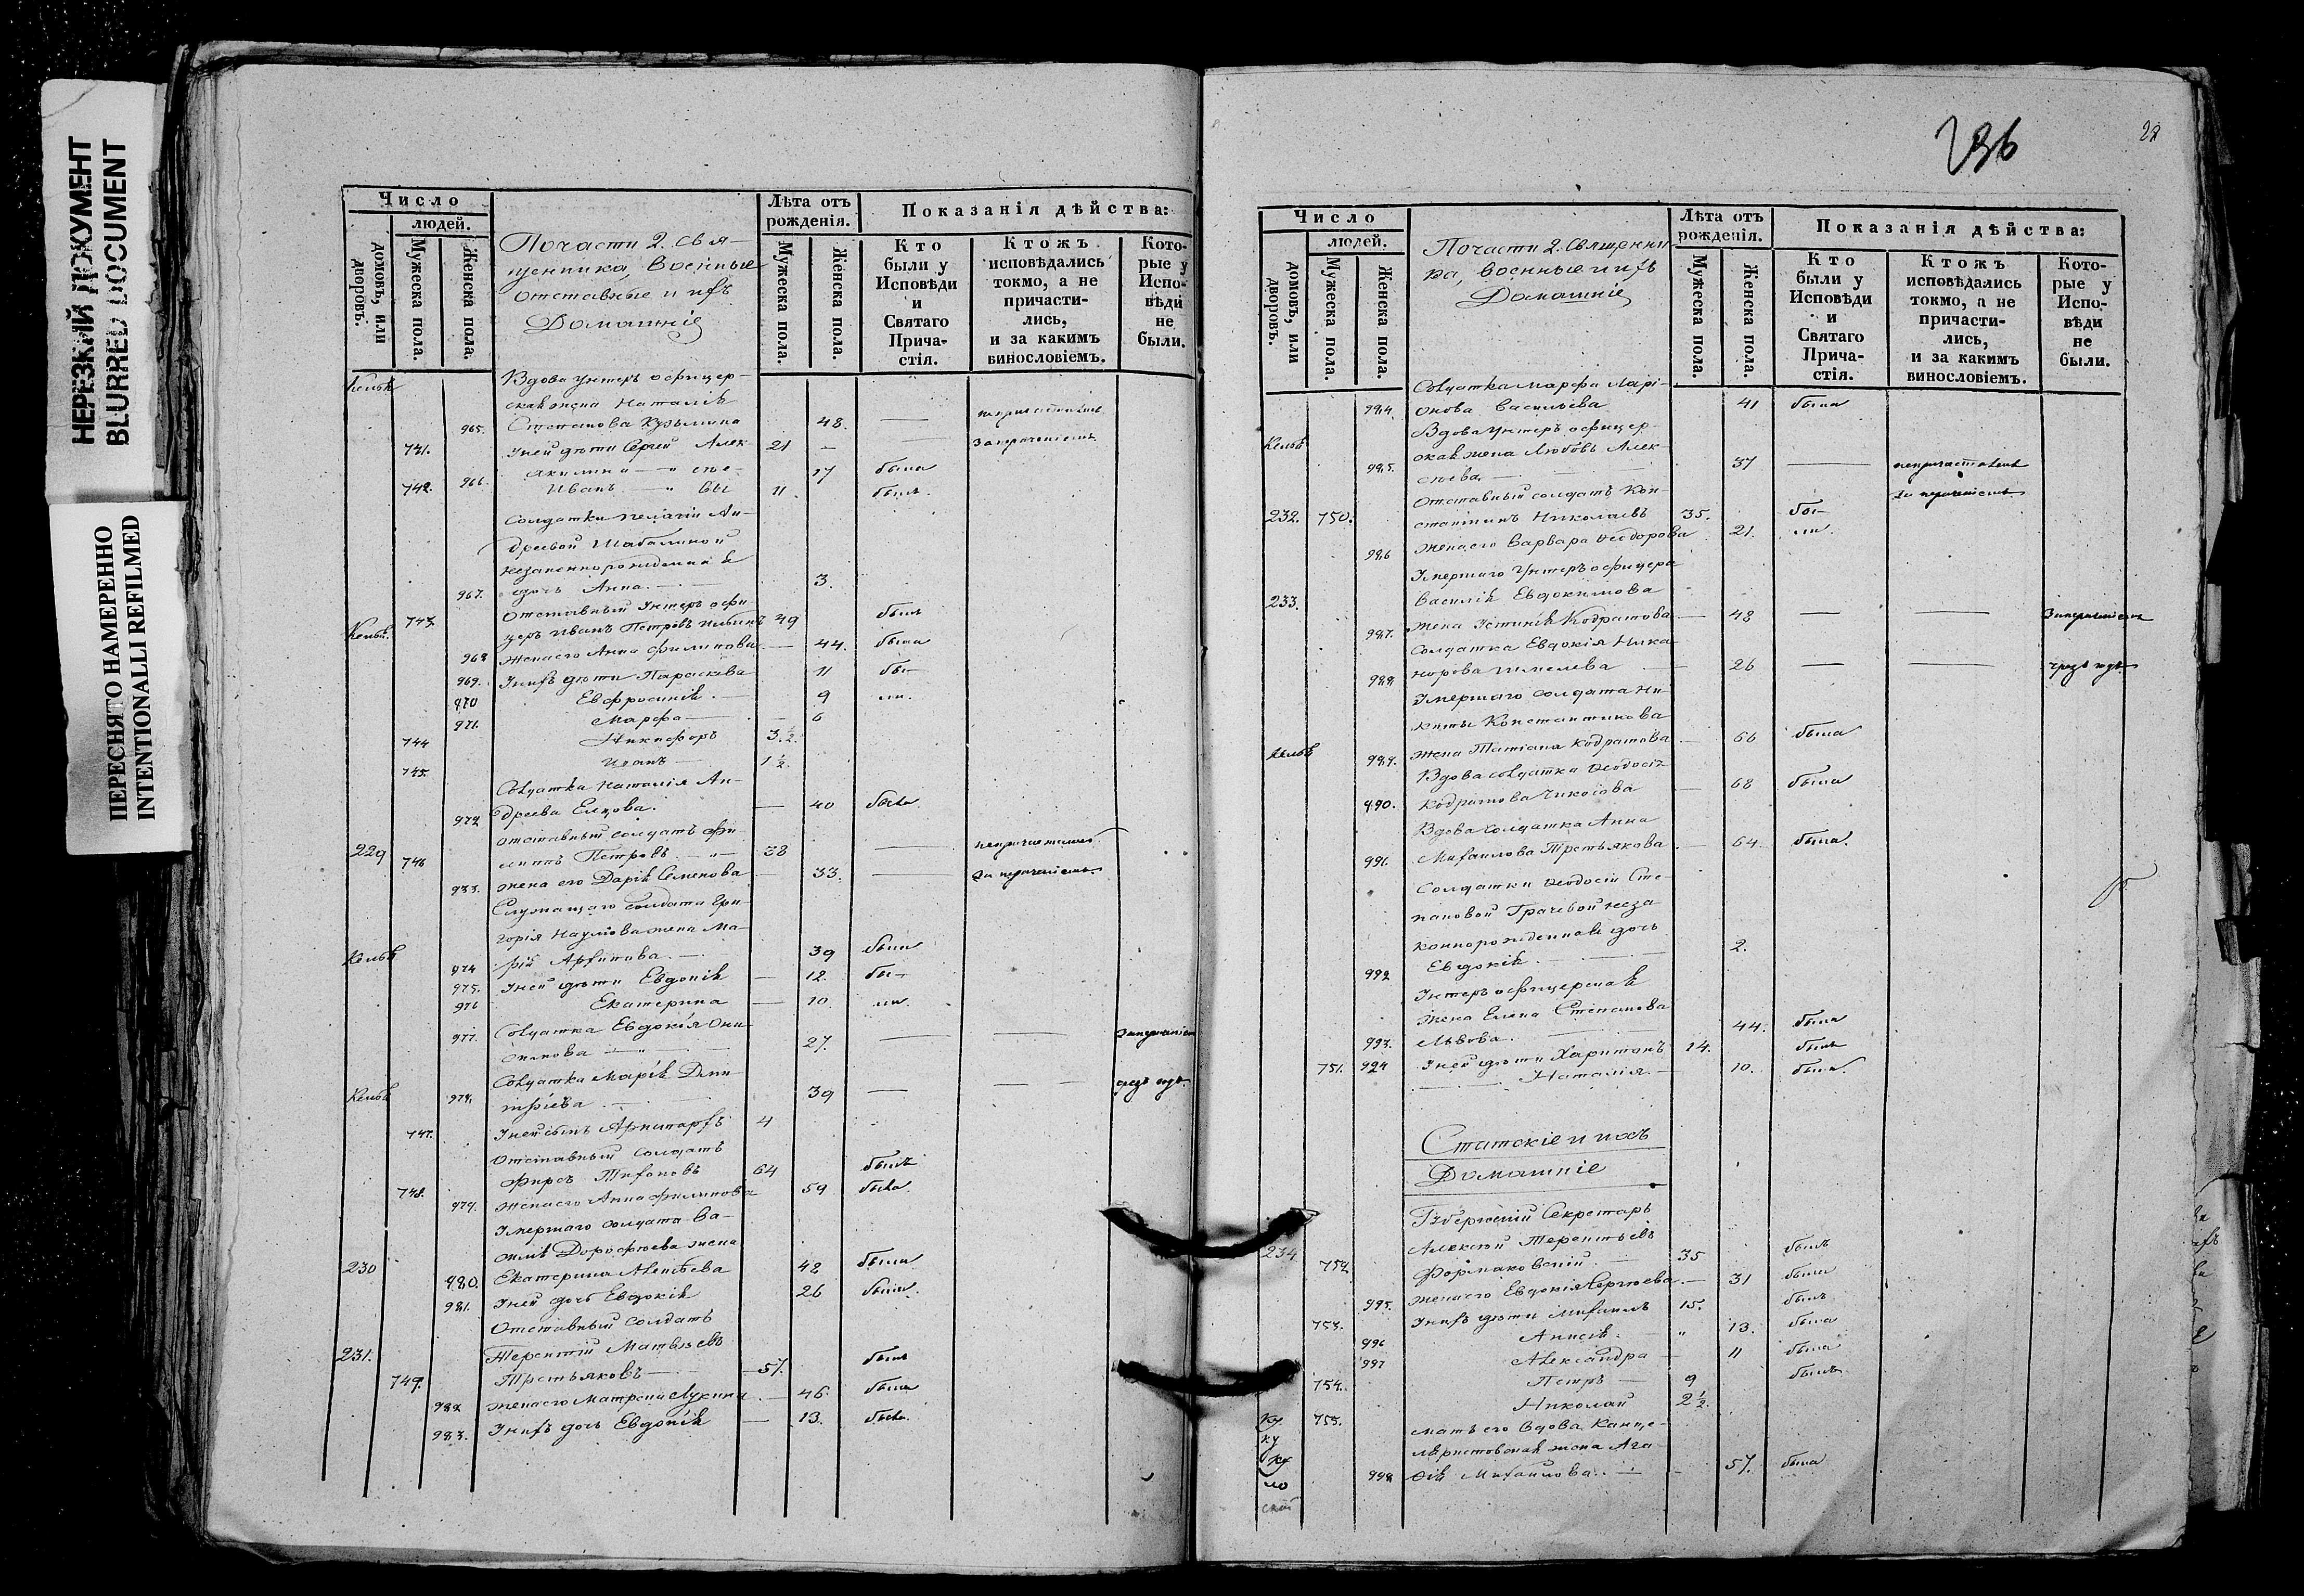 НЕРЕЗКИЙ ДОКУМЕНТ
BLURRED DOCUMENT
ПЕРЕСНЯТО НАМЕРЕННО
INTENTIONALLI REFILMED
Число
людей.
домовъ, или дворовъ.
Мужеска пола.
Женска пола.
Почасти 2. свя-
щенника, военные
отставные и ихъ
Домашніе
Лѣта отъ рожденія.
Мужеска пола.
Женска пола.
Показанія дѣйства:
Кто были у Исповѣди и Святаго Прича- стія.
Ктожъ исповѣдались токмо, а не причасти- лись, и за какимъ винословіемъ.
Кото- рые у Испо- вѣди не были.
Вдова унтеръ офицер-
ская жена Наталія
965. Степанова Кузьмина 48.
741. У ней дѣти Сергей Алек 21
966. Акилина 17 была
742. Иванъ 11 былъ.
Солдатки Пелагіи Ан-
дреевой Шабалиной
незаконнорожденная
967. дочь Анна 3
743. Отставный унтеръ офи
церъ Иванъ Петровъ 49 былъ
968 Жена его Анна Филипова 44. была
969. У нихъ дѣти Параскева 11 бы-
970 Евфросинія 9 ли.
971. Марфа 6
744 Никифоръ 3 ½.
745. Иванъ 1 ½.
Солдатка Наталія Ан-
972 дреева Елцова. 40 была
отставный солдатъ Фи
229 746 липпъ Петровъ 38
973. жена его Дарія Семенова 33.
Служащаго солдата Гри-
горія Наумова жена Ма-
974 рія Архипова. 39 была
975. У ней дѣти Евдокія 12. бы-
976 Екатерина 10. ли.
977. Солдатка Евдокія 27.
Солдатка Марія Дми-
978. тріева 39
747. У ней сынъ Аристархъ 4
Отставный солдатъ
748. Фирсъ Тихоновъ 64 былъ
979. Жена его Анна Филипова 59 была.
Умершаго солдата Ва-
силія Дорофеева жена
230 980. Екатерина Алексѣева 48 была
981. У ней дочь Евдокія 26 была.
Отставный солдатъ
231. Терентій Матвѣевъ
749. Третьяковъ 57. былъ
982 Жена его Матрена Лукина 46. была
983. У нихъ дочь Евдокія 13. была.
236
22
Число
людей.
домовъ, или дворовъ.
Мужеска пола.
Женска пола.
Почасти 2. Священни
ка, военные и ихъ
Домашніе
Лѣта отъ рожденія.
Мужеска пола.
Женска пола.
Показанія дѣйства:
Кто были у Исповѣди и Святаго Прича- стія.
Ктожъ исповѣдались токмо, а не причасти- лись, и за какимъ винословіемъ.
Кото- рые у Испо- вѣди не были.
Солдатка Марфа Ларі-
984. онова Васильева 41 была
Вдова унтеръ офицер-
ская жена Любовь Алек-
985. сѣева 37
Отставный солдатъ Кон-
232. 750. стантинъ Николаевъ 35. бы-
986 Жена его Варвара Ѳеодорова 21. ли.
Умершаго унтеръ офицера
233. Василія Евдокимова
987. Жена Устинія Кодратова 48
Солдатка Евдокія Ника-
988 норова Шмелева 26
Умершаго солдата Ни-
киты Константинова
989. Жена Татіана Кодратова 66 была
Вдова солдатка Ѳеодосія
990. Кодратова 68 была
Вдова солдатка Анна
991. Михаилова Третьякова 64 была.
Солдатки Ѳеодосіи Сте-
пановой Грачевой неза-
коннорожденная дочь
992 Евдокія 2.
Унтеръ офицерская
жена Елена Степанова
993. Львова. 44. была
751. У ней дѣти Харитонъ 14. былъ
994 Наталія 10. была.
Статскіе и ихъ
Домашніе
Губернскій Секретарь
234 Алексѣй Терентьевъ
752 Формаковскій 35 былъ
995. Жена его Евдокія Сергѣева 31 была
753. У нихъ дѣти Михаилъ 15. былъ
996 Анисія 13. была
997 Александра 11 была
754. Петръ 9 былъ
755. Николай 2 ½.
мать его вдова канце-
ляристовская жена Ага-
998 фія Михаилова 57. была